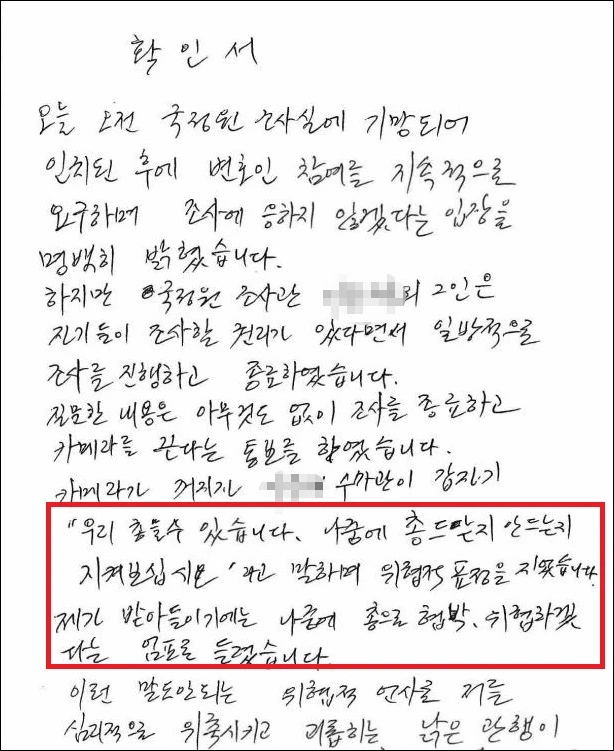 확인서
오늘 오전 국정원 조사실에 기망되어
인치된 후에 변호인 참여를 지속적으로
요구하며 조사에 응하지 않겠다는 입장을
명백히 밝혔습니다.
하지만 국정원 조사관 외 2인은
자기들이 조사할 권리가 있다면서 일방적으로
조사를 진행하고 종료하였습니다.
질문한 내용은 아무것도 없이 조사를 종료하고
카메라를 끈다는 통보를 하였습니다.
카메라가 꺼지자 수사관이 갑자기
"우리 총들수 있습니다. 나중에 총드는지 안드는지
지켜보십시오"라고 말하며 위협적 표정을 지었습니다.
제가 받아들이기에는 나중에 총으로 협박, 위협하겠
다는 엄포로 들렸습니다.
이런 말도안되는 위협적 언사로 저를
심리적으로 위축시키고 괴롭히는, 낡은 관행이